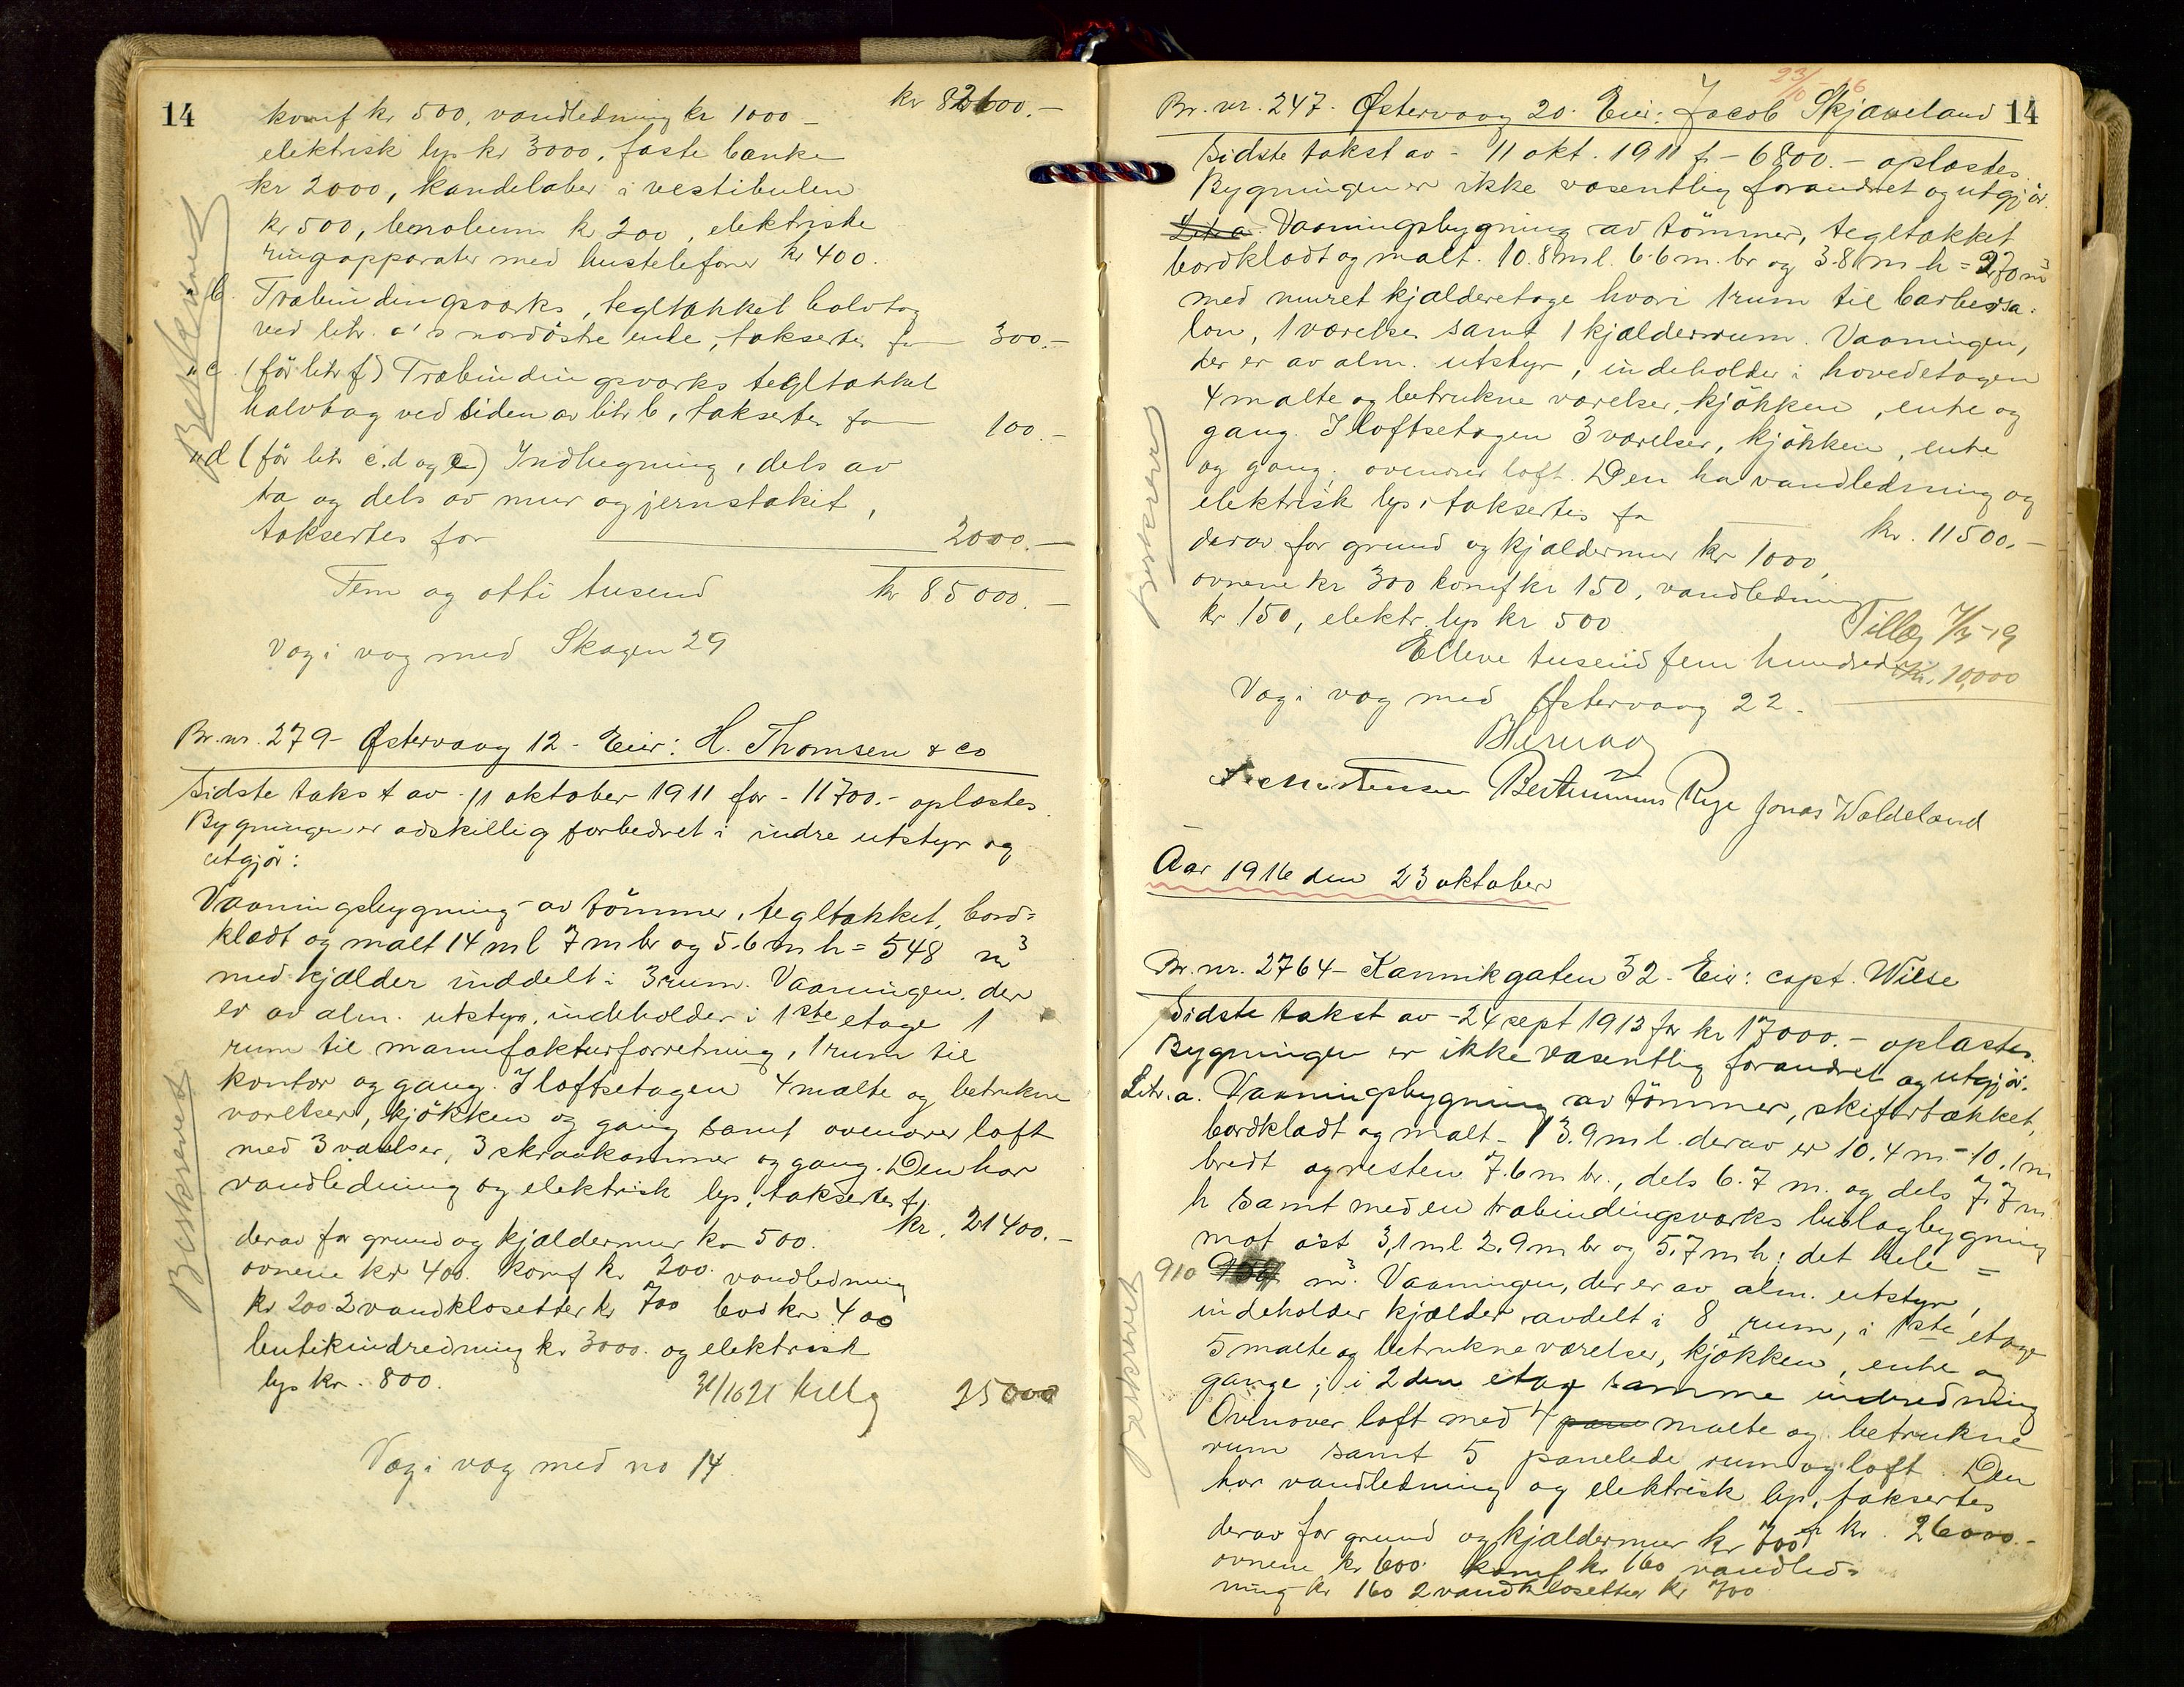 14
komf kr 500, vandledning kr 1000 – kr 82600.–
elektrisk lys kr 3000, faste bænke
kr 2000, kandelaber i vestibulen
kr 500, linoleum kr 200, elektriske
ringapparater med hustelefoner kr 400.
" b. Træbindingsværks, tegltækket halvtag
ved litr. a's nordöstre ende, takseres for 300.–
" c. (för litr f) Træbindingsværks tegltækket
halvtag ved siden av litr b, takseres for 100.–
" d (för litr c, d og e) Indhegning, dels av
træ og dels av mur og jernstakit,
taksertes for 2000.–
Fem og otti tusend kr 85000.–
Væg i væg med Skagen 29
Beskrevet
Br. nr. 279 – Østervaag 12 – Eier: H. Thomsen & co
Sidste takst av 11 oktober 1911 for – 11700.– oplæstes.
Bygningen er adskillig forbedret i indre utstyr og
utgjör:
Vaaningsbygning av tömmer, tegltækket, bord=
klædt og malt 14 m l 7 m br og 5.6 m h = 548 m³
med kjælder inddelt i 3 rum. Vaaningen, der
er av alm. utstyr, indeholder i 1ste etage 1
rum til manufakturforretning, 1 rum til
kontor og gang. I loftsetagen 4 malte og betrukne
værelser, kjökken og gang samt ovenover loft
med 3 værelser, 3 skraakammer og gang. Den har
vandledning og elektrisk lys, taksertes for
kr. 21400.–
derav for grund og kjældermur kr 500.
ovnene kr 400. komf kr 200. vandledning
kr 200 2 vandklosetter kr 700 bod kr 400
butikindredning kr 3000. og elektrisk
lys kr. 800. 31/10 21 tillæg 25000
Væg i væg med no 14.
Beskrevet
23/10 – 16
Br. nr. 247. Østervaag 20. Eier: Jacob Skjæveland 14
Sidste takst av – 11 okt. 1911 f – 6800.– oplæstes.
Bygningen er ikke væsentlig forandret og utgjör.
Litr a. Vaaningsbygning av tömmer, tegltækket
bordklædt og malt. 10.8 m l. 6.6 m. br og 3.8 m h = 270 m³
med muret kjælderetage hvori 1 rum til barbersa=
lon, 1 værelse samt 1 kjælderrum. Vaaningen,
der er av alm. utstyr, indeholder i hovedetagen
4 malte og betrukne værelser, kjökken, entre og
gang. I loftsetagen 3 værelser, kjökken, entre
og gang; ovenover loft. Den har vandledning og
elektrisk lys, taksertes for kr. 11500.–
derav for grund og kjældermur kr 1000,
ovnene kr 300 komf kr 150, vandledning
kr 150, elektr. lys kr 500
Tillæg 7/3 – 19
Elleve tusend fem hundrede Kr. 10,000
Væg i væg med Østervaag 22.
Beskrevet
Jonas Woldeland
Aar 1916 den 23 oktober
Br. nr. 2764 – Kannikgaten 32 – Eier: capt. Wiese
Sidste takst av – 24 sept 1913 for kr 17000.– oplæstes.
Bygningen er ikke væsentlig forandret og utgjör.
Litr. a. Vaaningsbygning av tömmer, skifertækket,
bordklædt og malt – 13.9 m l. derav er 10.4 m – 10.1 m
bredt og resten 7.6 m br., dels 6.7 m. og dels 7.7 m
h samt med en træbindingsværks bislagbygning
mot öst 3,1 m l 2.9 m br og 5.7 m h; det hele =
910 m³. Vaaningen, der er av alm. utstyr,
indeholder kjælder avdelt i 8 rum, i 1ste etage
5 malte og betrukne værelser, kjökken, entre og
gange; i 2den etage samme indredning
Ovenover loft med 4 pane malte og betrukne
rum samt 5 panelede rum og loft. Den
har vandledning og elektrisk lys, taksertes
for kr. 26000.–
derav for grund og kjældermur kr 700
ovnene kr 600. komf kr 160 vandled=
ning kr 160 2 vandklosetter kr 700
Beskrevet